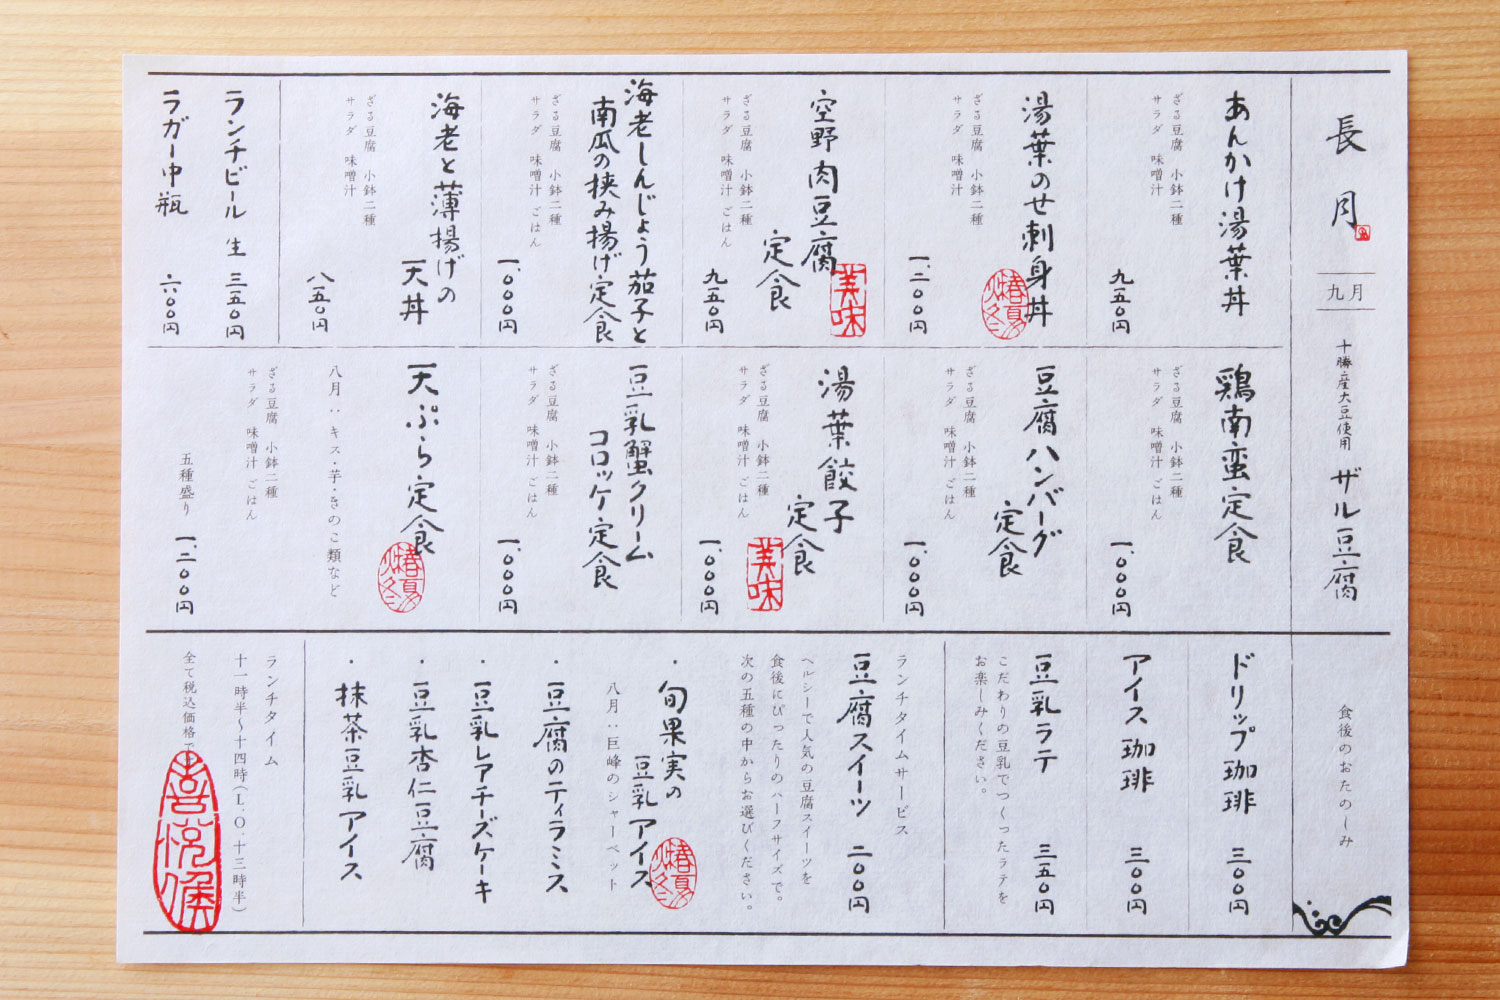 長月
九月
十勝産大豆使用 ザル豆腐
あんかけ湯葉丼
ざる豆腐 小鉢二種
サラダ 味噌汁
九五〇円
湯葉のせ刺身丼
ざる豆腐 小鉢二種
サラダ 味噌汁
一、二〇〇円
空野肉豆腐
定食
美味
ざる豆腐 小鉢二種
サラダ 味噌汁 ごはん
九五〇円
海老しんじょう茄子と
南瓜の挟み揚げ定食
ざる豆腐 小鉢二種
サラダ 味噌汁 ごはん
一、〇〇〇円
海老と薄揚げの
天丼
ざる豆腐 小鉢二種
サラダ 味噌汁
八五〇円
ランチビール 生 三五〇円
ラガー中瓶 六〇〇円
鶏南蛮定食
ざる豆腐 小鉢二種
サラダ 味噌汁 ごはん
一、〇〇〇円
豆腐ハンバーグ
定食
ざる豆腐 小鉢二種
サラダ 味噌汁 ごはん
一、〇〇〇円
湯葉餃子
定食
美味
ざる豆腐 小鉢二種
サラダ 味噌汁 ごはん
一、〇〇〇円
豆乳蟹クリーム
コロッケ定食
ざる豆腐 小鉢二種
サラダ 味噌汁 ごはん
一、〇〇〇円
天ぷら定食
八月：キス・芋・きのこ類など
ざる豆腐 小鉢二種
サラダ 味噌汁 ごはん
五種盛り 一、二〇〇円
食後のおたのしみ
ドリップ珈琲 三〇〇円
アイス珈琲 三〇〇円
豆乳ラテ 三五〇円
こだわりの豆乳でつくったラテを
お楽しみください。
ランチタイムサービス
豆腐スイーツ 二〇〇円
ヘルシーで人気の豆腐スイーツを
食後にぴったりのハーフサイズで。
次の五種の中からお選びください。
・旬果実の
豆乳アイス
八月：巨峰のシャーベット
・豆腐のティラミス
・豆乳レアチーズケーキ
・豆乳杏仁豆腐
・抹茶豆乳アイス
ランチタイム
十一時半〜十四時（L.O.十三時半）
全て税込価格です